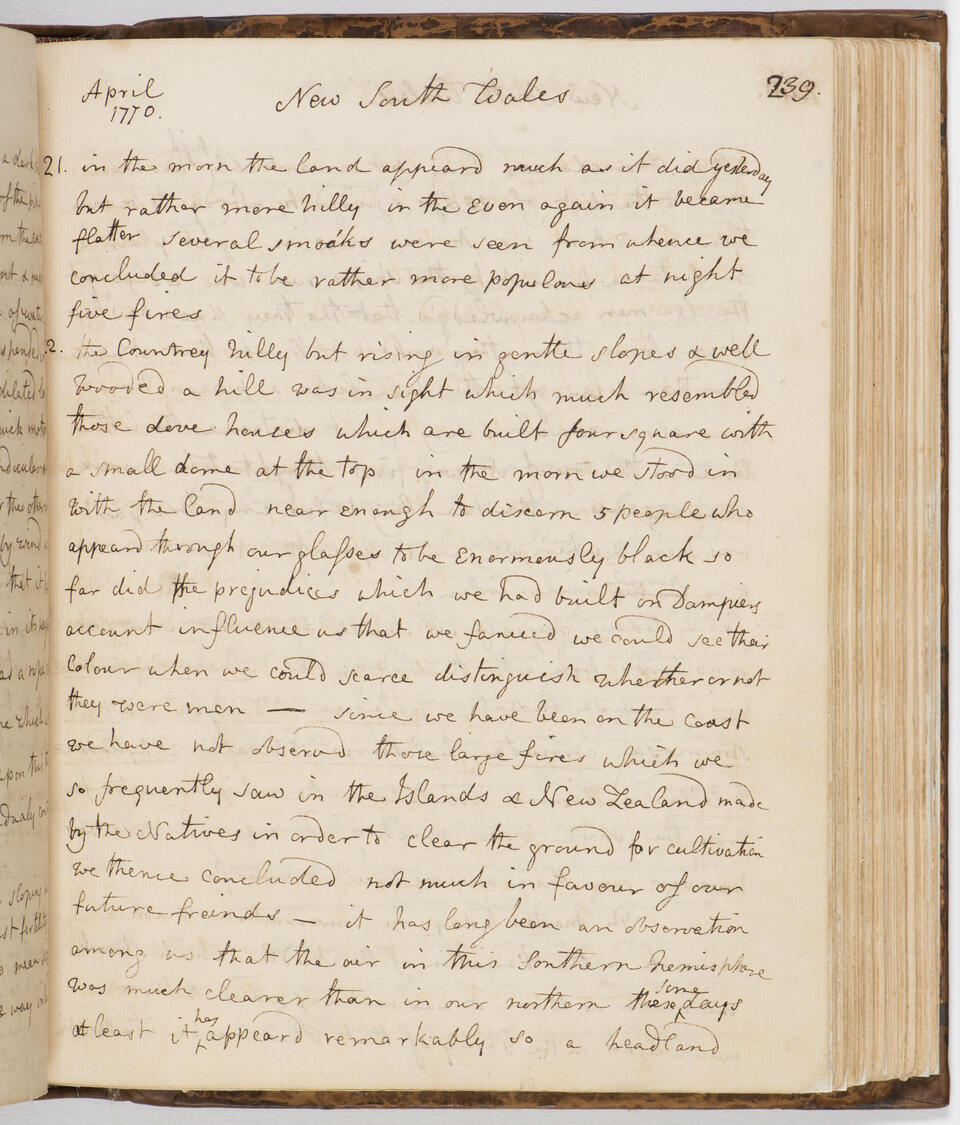 April
1770.
New South Wales
239.
21. in the morn the land appeard much as it did yesterday
but rather more hilly in the Even again it became
flatter several smoaks were seen from whence we
concluded it to be rather more populous at night
five fires
2. the Countrey hilly but rising in gentle slopes & well
wooded a hill was in sight which much resembled
those dove houses which are built four square with
a small dome at the top in the morn we stood in
with the land near enough to discern 5 people who
appeard through our glasses to be Enormously black so
far did the prejudices which we had built on Dampiers
account influence us that we fancied we could see their
Colour when we could scarce distinguish whether or not
they were men — since we have been on the coast
we have not observd those large fires which we
so frequently saw in the Islands & New Zealand made
by the Natives in order to clear the ground for cultivation
we thence concluded not much in favour of our
future freinds — it has long been an observation
among us that the air in this Southern hemisphere
was much clearer than in our northern these some days
at least it has appeard remarkably so a headland